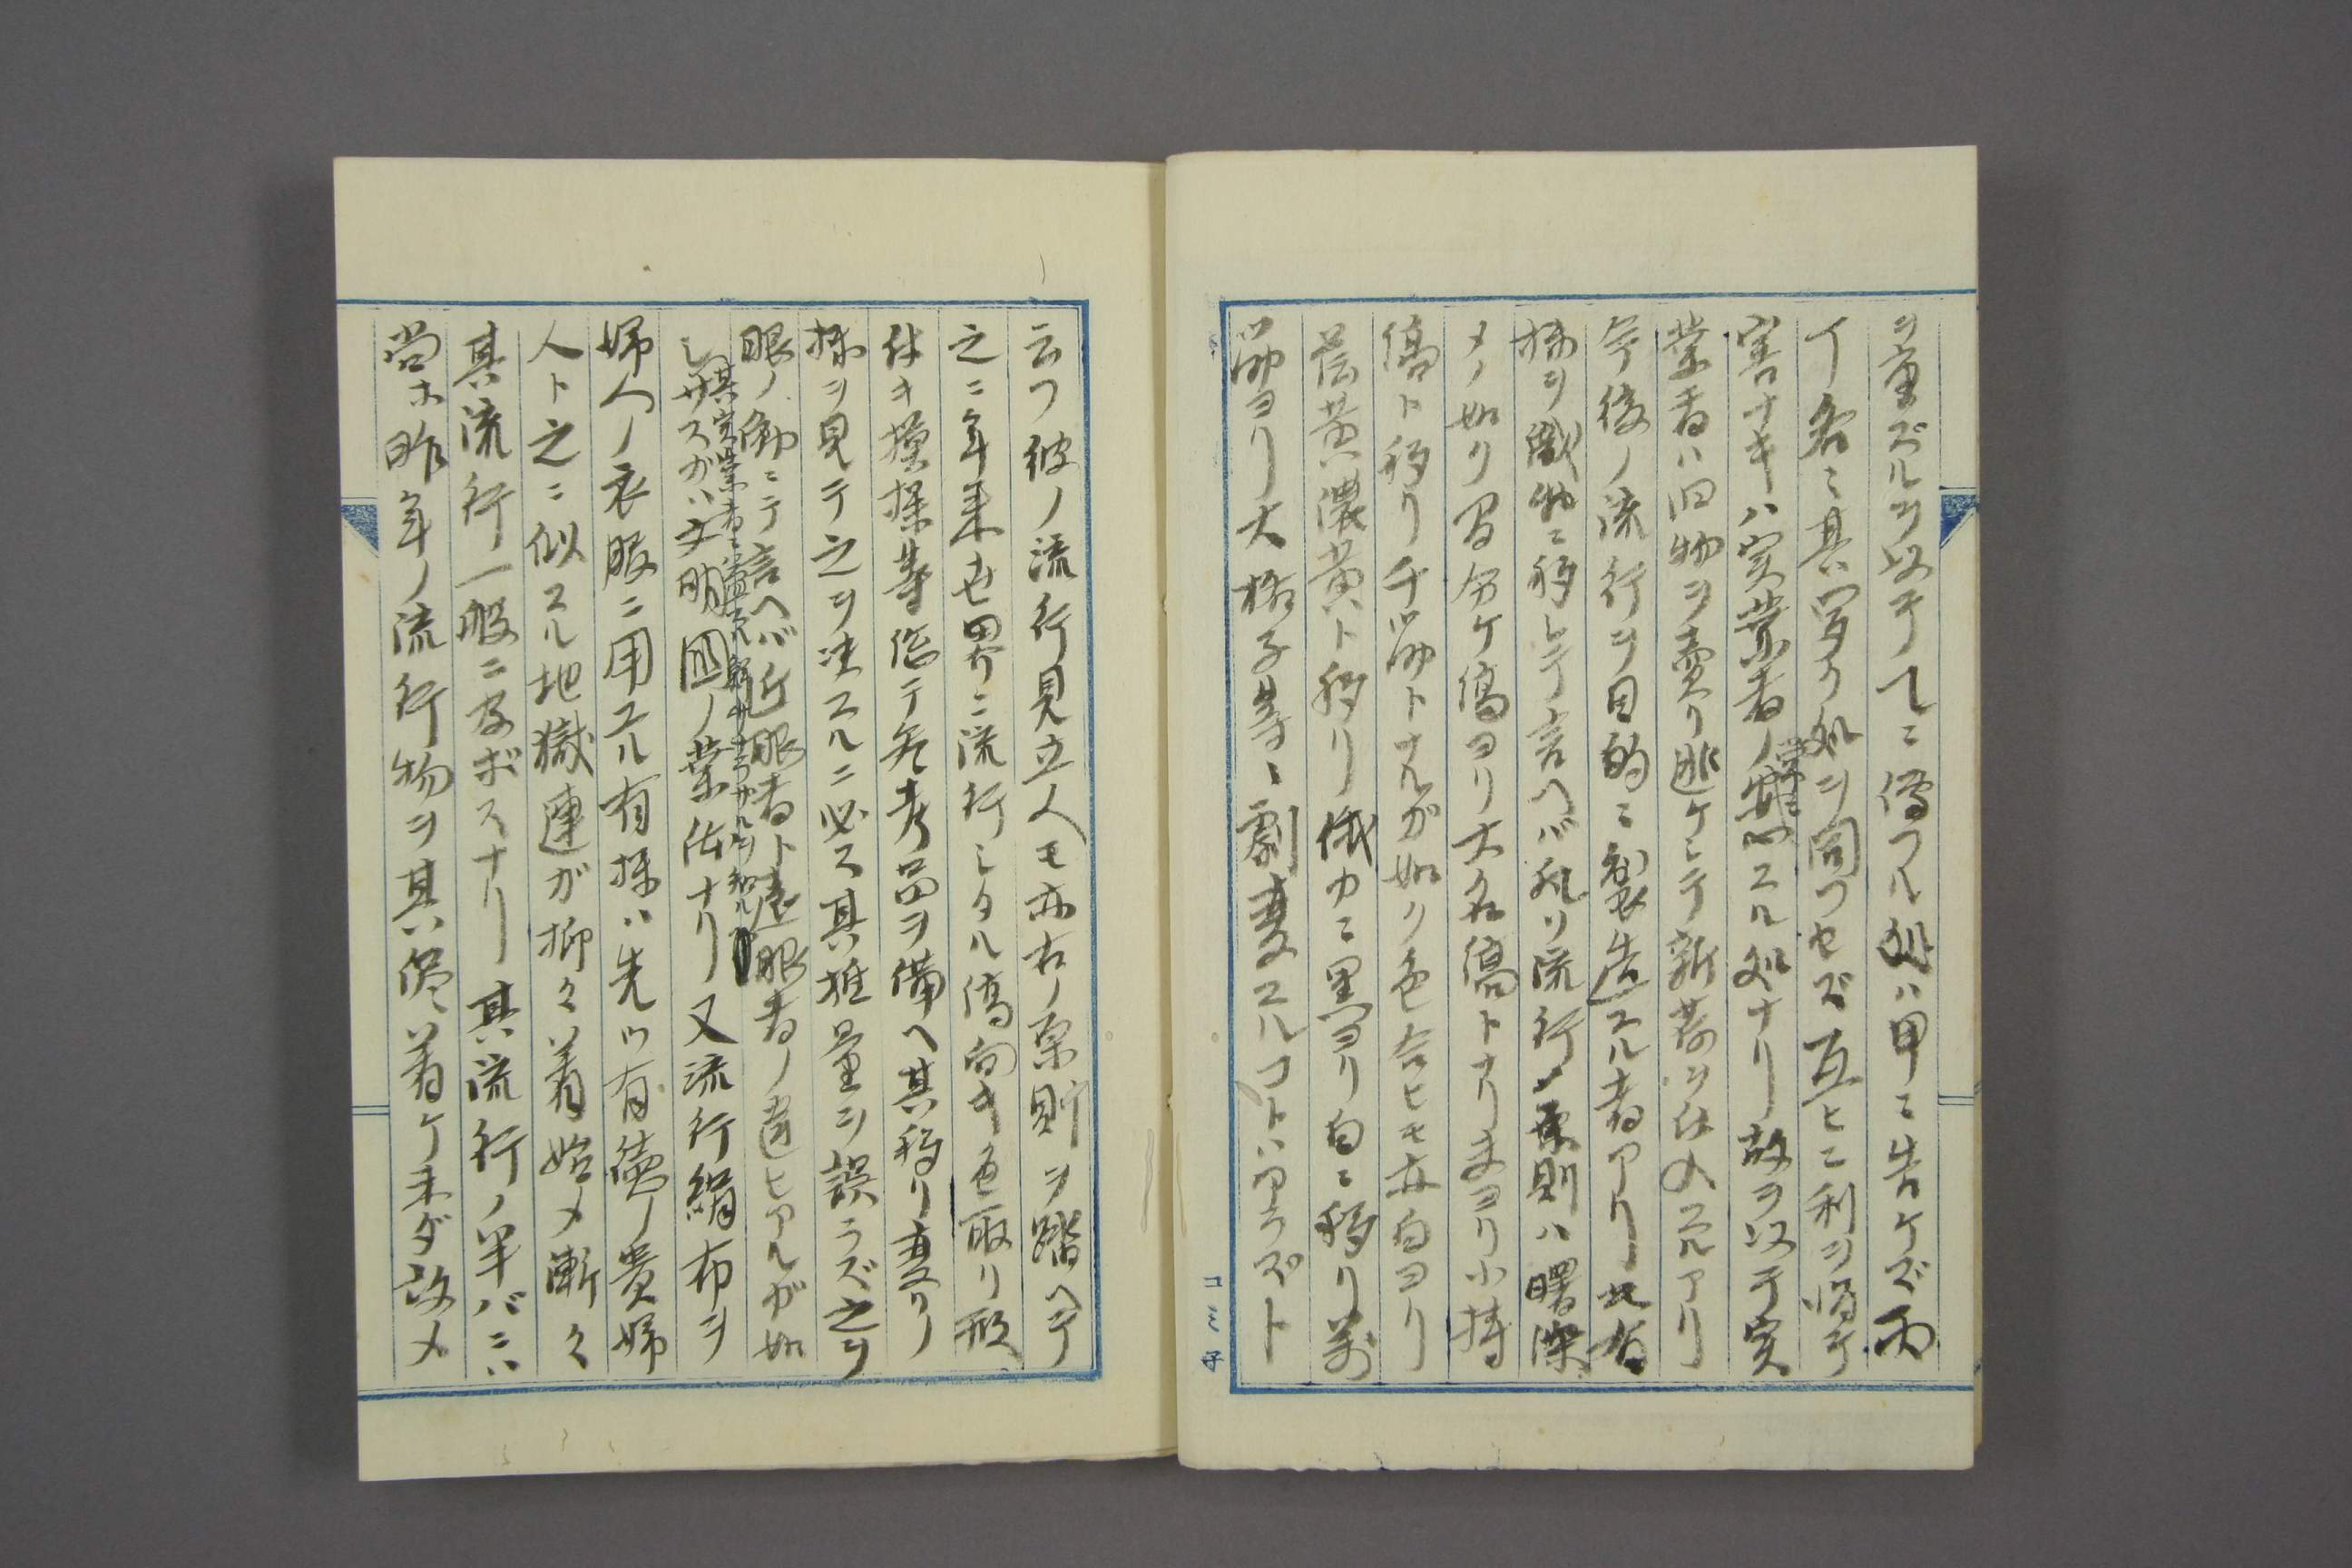 ヲ重ズルヲ以テ乙ニ傳フル処ハ甲ニ告ケズ丙
丁各ニ其望ク処ヲ同フセズ互ヒニ利ヲ得テ
害ナキハ実業者ノ スル処ナリ故ヲ以テ実
業者ハ旧物ヲ賣リ逃ケシテ新荷ヲ仕入スルアリ
今後ノ流行ヲ目的ニ製造スル者アリ此有
様ヲ織物ニ移シテ言ヘバ凡ソ流行ノ原則ハ曙染
メノ如ク腎分ケ縞ヨリ大名縞トナリ夫ヨリ小棒
縞ト移リ千筋トナルガ如ク色合ヒモ亦白ヨリ
淡黄濃黄ト移リ俄カニ黒ヨリ白ニ移リ万
筋ヨリ大格子等ニ劇変スルコトハアラズト
コミ子
云フ彼ノ流行見立人モ亦右ノ原則ヲ踏ヘテ
之ニ年来世界ニ流行シタル縞向キ色取リ形
付キ模様等悉テ参考品ヲ備ヘ其移リ変リノ
様ヲ見テ之ヲ決スルニ必ス其推量ヲ誤ラズ之ヲ
眼ノ働ニテ言ヘバ近眼者ト遠眼者ノ違ヒアルガ如
シ其実業者ニ ヲ知ル
サスガハ文明国ノ業体ナリ又流行絹布ヲ
婦人ノ衣服ニ用ユル有様ハ先ツ有徳ノ貴婦
人ト之ニ似スル地獄連ガ抑々着始メ漸々
其流行一般ニ及ボスナリ其流行ノ半バニハ
尚ホ昨年ノ流行物ヲ其侭着ケ未ダ改メ